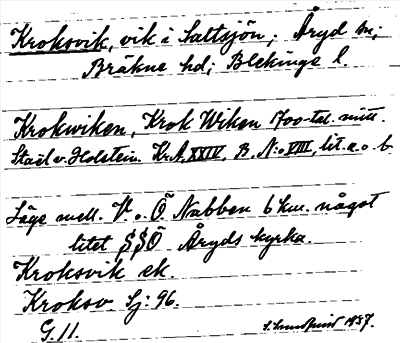 Kroksvik, vik i Saltsjön; Åryd sn;
Bräkne hd; Blekinge l.
Krokwiken, Krok Wiken 1700-tal. mitt.
Staël v. Holstein. Kr. A, XXIV, B, N:o VIII, lit. a. o. b.
Läge mell. V. o. Ö. Nabben 6 km. något
litet S§Ö Åryds kyrka.
Kroksvik ek.
Kroksv. Sj: 96.
G. 11.
1937.